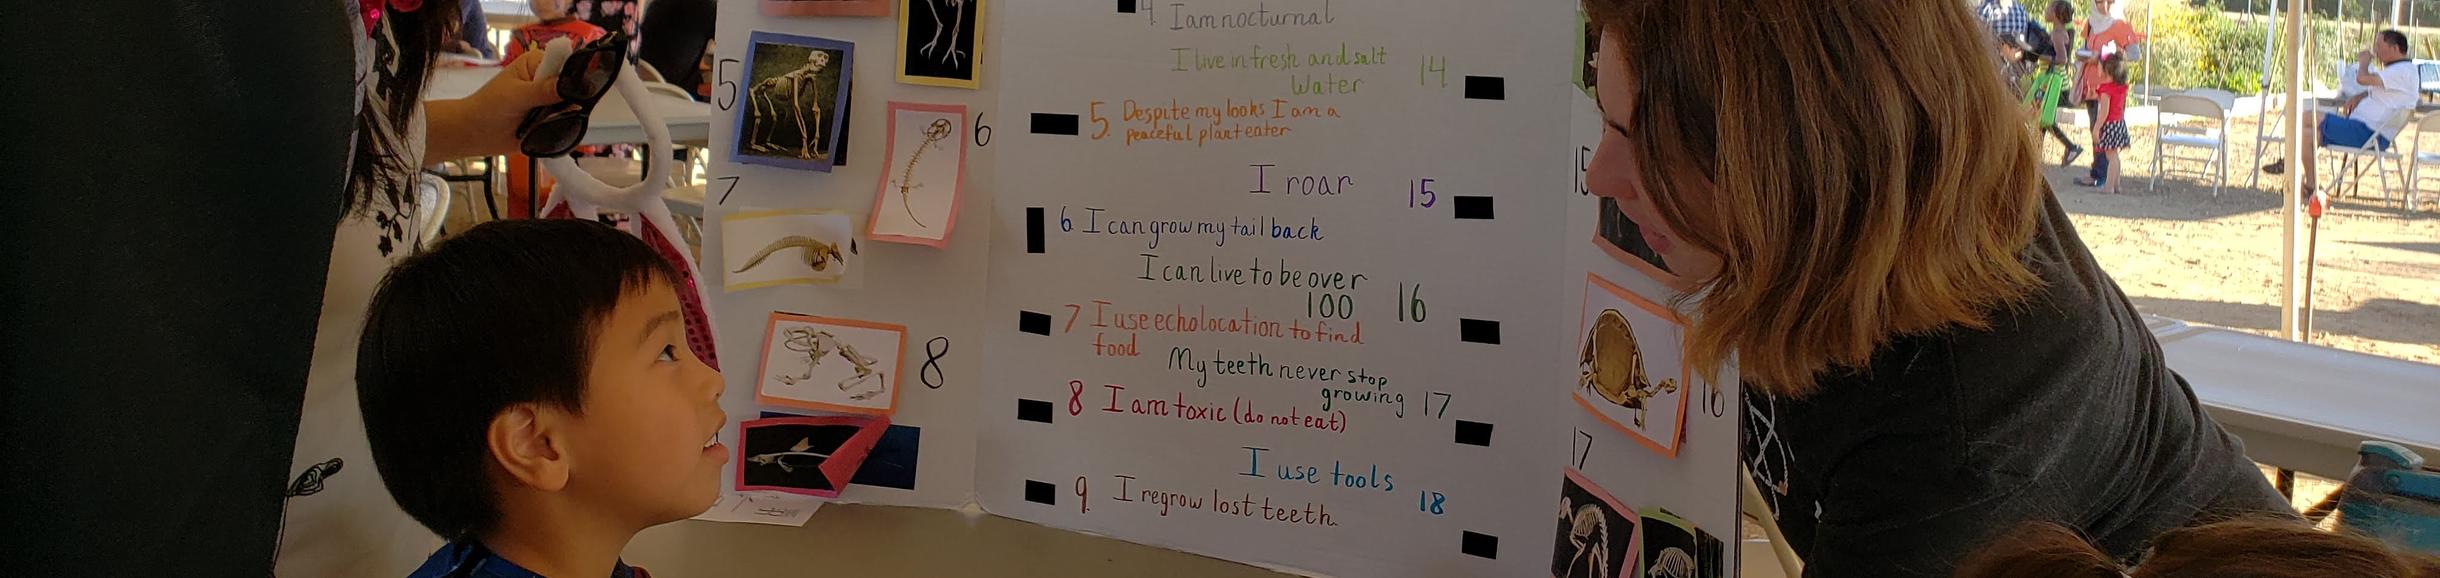 4. I am nocturnal
I live in fresh and salt
Water
14
5. Despite my looks I am a
peaceful plant eater
I roar 15
6 I can grow my tail back
I can live to be over
100 16
7 I use echolocation to find
food
My teeth never stop
growing 17
8 I am toxic (do not eat)
I use tools
18
9. I regrow lost teeth.
5
6
7
8
15
16
17